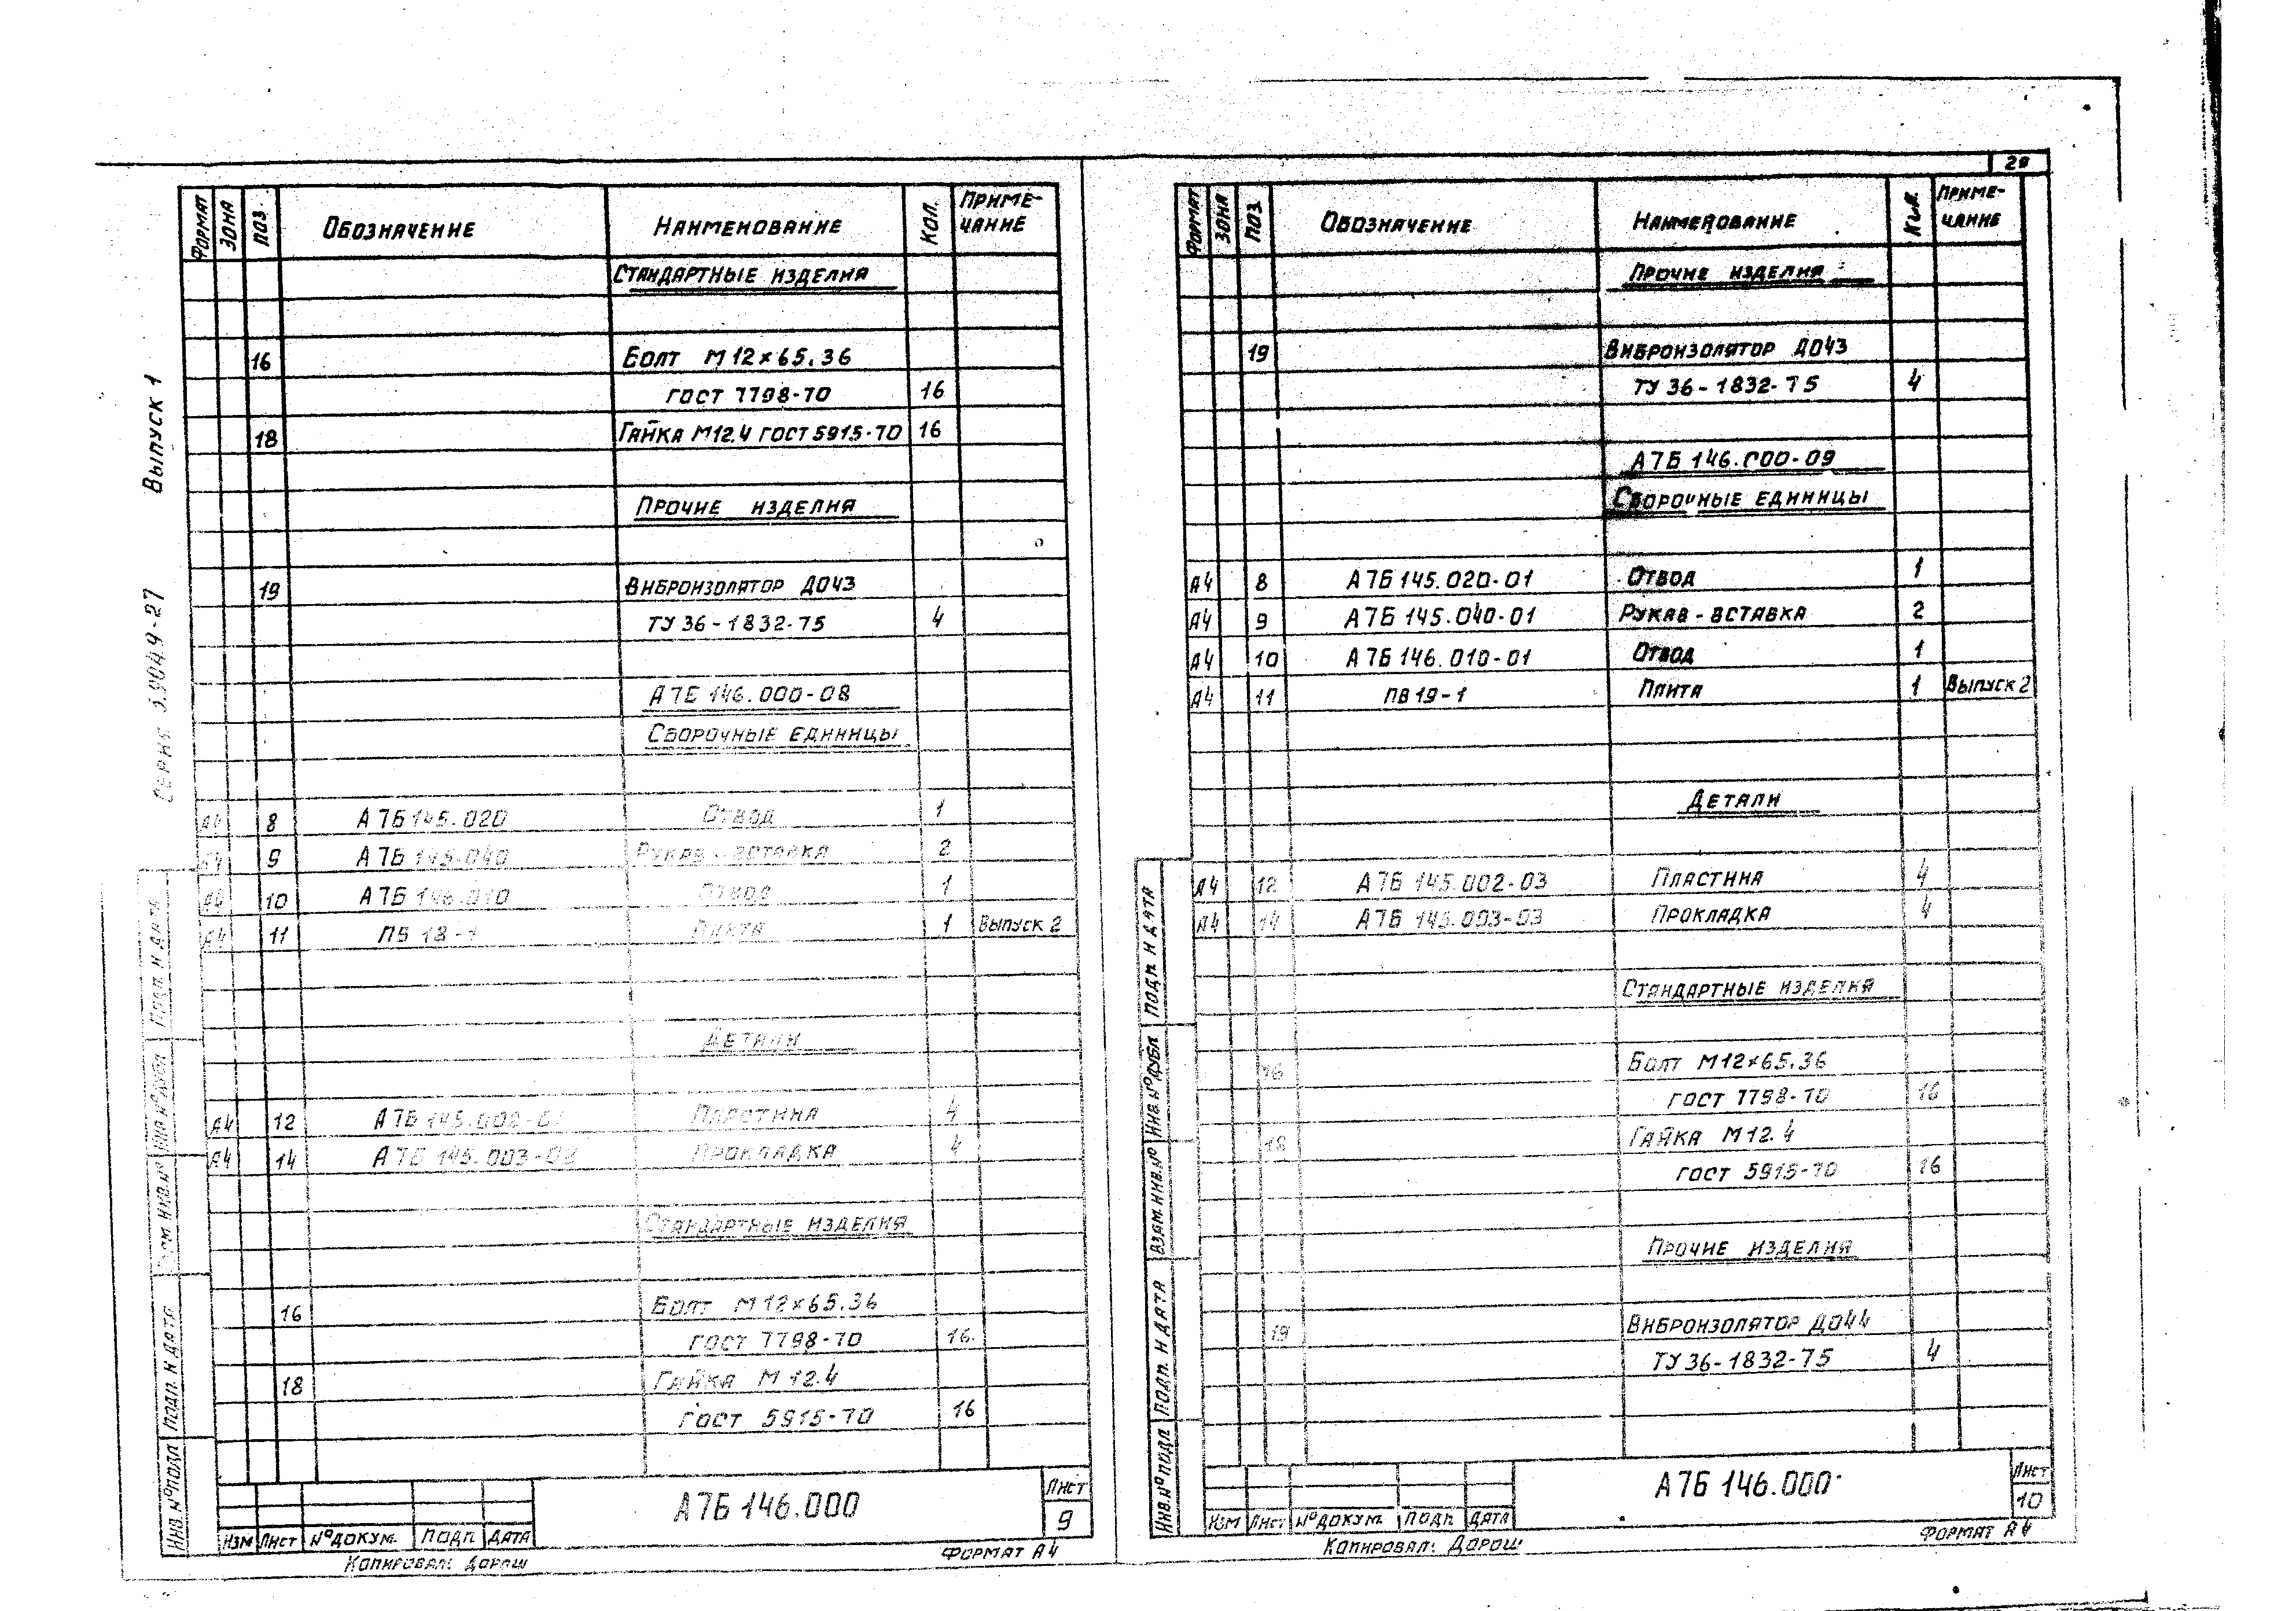 20
Выпуск 1
Серия 5.9049-27
Формат Зона Поз. Обозначение Наименование Кол. Приме-
чание
Стандартные изделия
16 Болт М12×65.36
ГОСТ 7798-70 16
18 Гайка М12.4 ГОСТ 5915-70 16
Прочие изделия
19 Виброизолятор ДО43
ТУ 36-1832-75 4
А7Б 146.000-08
Сборочные единицы
А4 8 А7Б 145.020 Отвод 1
А4 9 А7Б 145.040 Рукав-вставка 2
А4 10 А7Б 146.010 Отвод 1
А4 11 ПВ 18-1 Плита 1 Выпуск 2
Детали
А4 12 А7Б 145.002- Пластина 4
А4 14 А7Б 145.003-02 Прокладка 4
Стандартные изделия
16 Болт М12×65.36
ГОСТ 7798-70 16
18 Гайка М12.4
ГОСТ 5915-70 16
Подп. и дата
Инв. № дубл
Взам. инв. №
Подп. и дата
Инв. № подл
А7Б 146.000
Лист
9
Изм Лист № докум. Подп Дата
Копировал: Дорош Формат А4
Формат Зона Поз. Обозначение Наименование Кол. Приме-
чание
Прочие изделия
19 Виброизолятор ДО43
ТУ 36-1832-75 4
А7Б 146.000-09
Сборочные единицы
А4 8 А7Б 145.020-01 Отвод 1
А4 9 А7Б 145.040-01 Рукав-вставка 2
А4 10 А7Б 146.010-01 Отвод 1
А4 11 ПВ 19-1 Плита 1 Выпуск 2
Детали
А4 12 А7Б 145.002-03 Пластина 4
А4 14 А7Б 145.003-03 Прокладка 4
Стандартные изделия
16 Болт М12×65.36
ГОСТ 7798-70 16
18 Гайка М12.4
ГОСТ 5915-70 16
Прочие изделия
19 Виброизолятор ДО44
ТУ 36-1832-75 4
Подп. и дата
Инв. № дубл
Взам. инв. №
Подп. и дата
Инв. № подл
А7Б 146.000
Лист
10
Изм Лист № докум. Подп Дата
Копировал: Дорош Формат А4